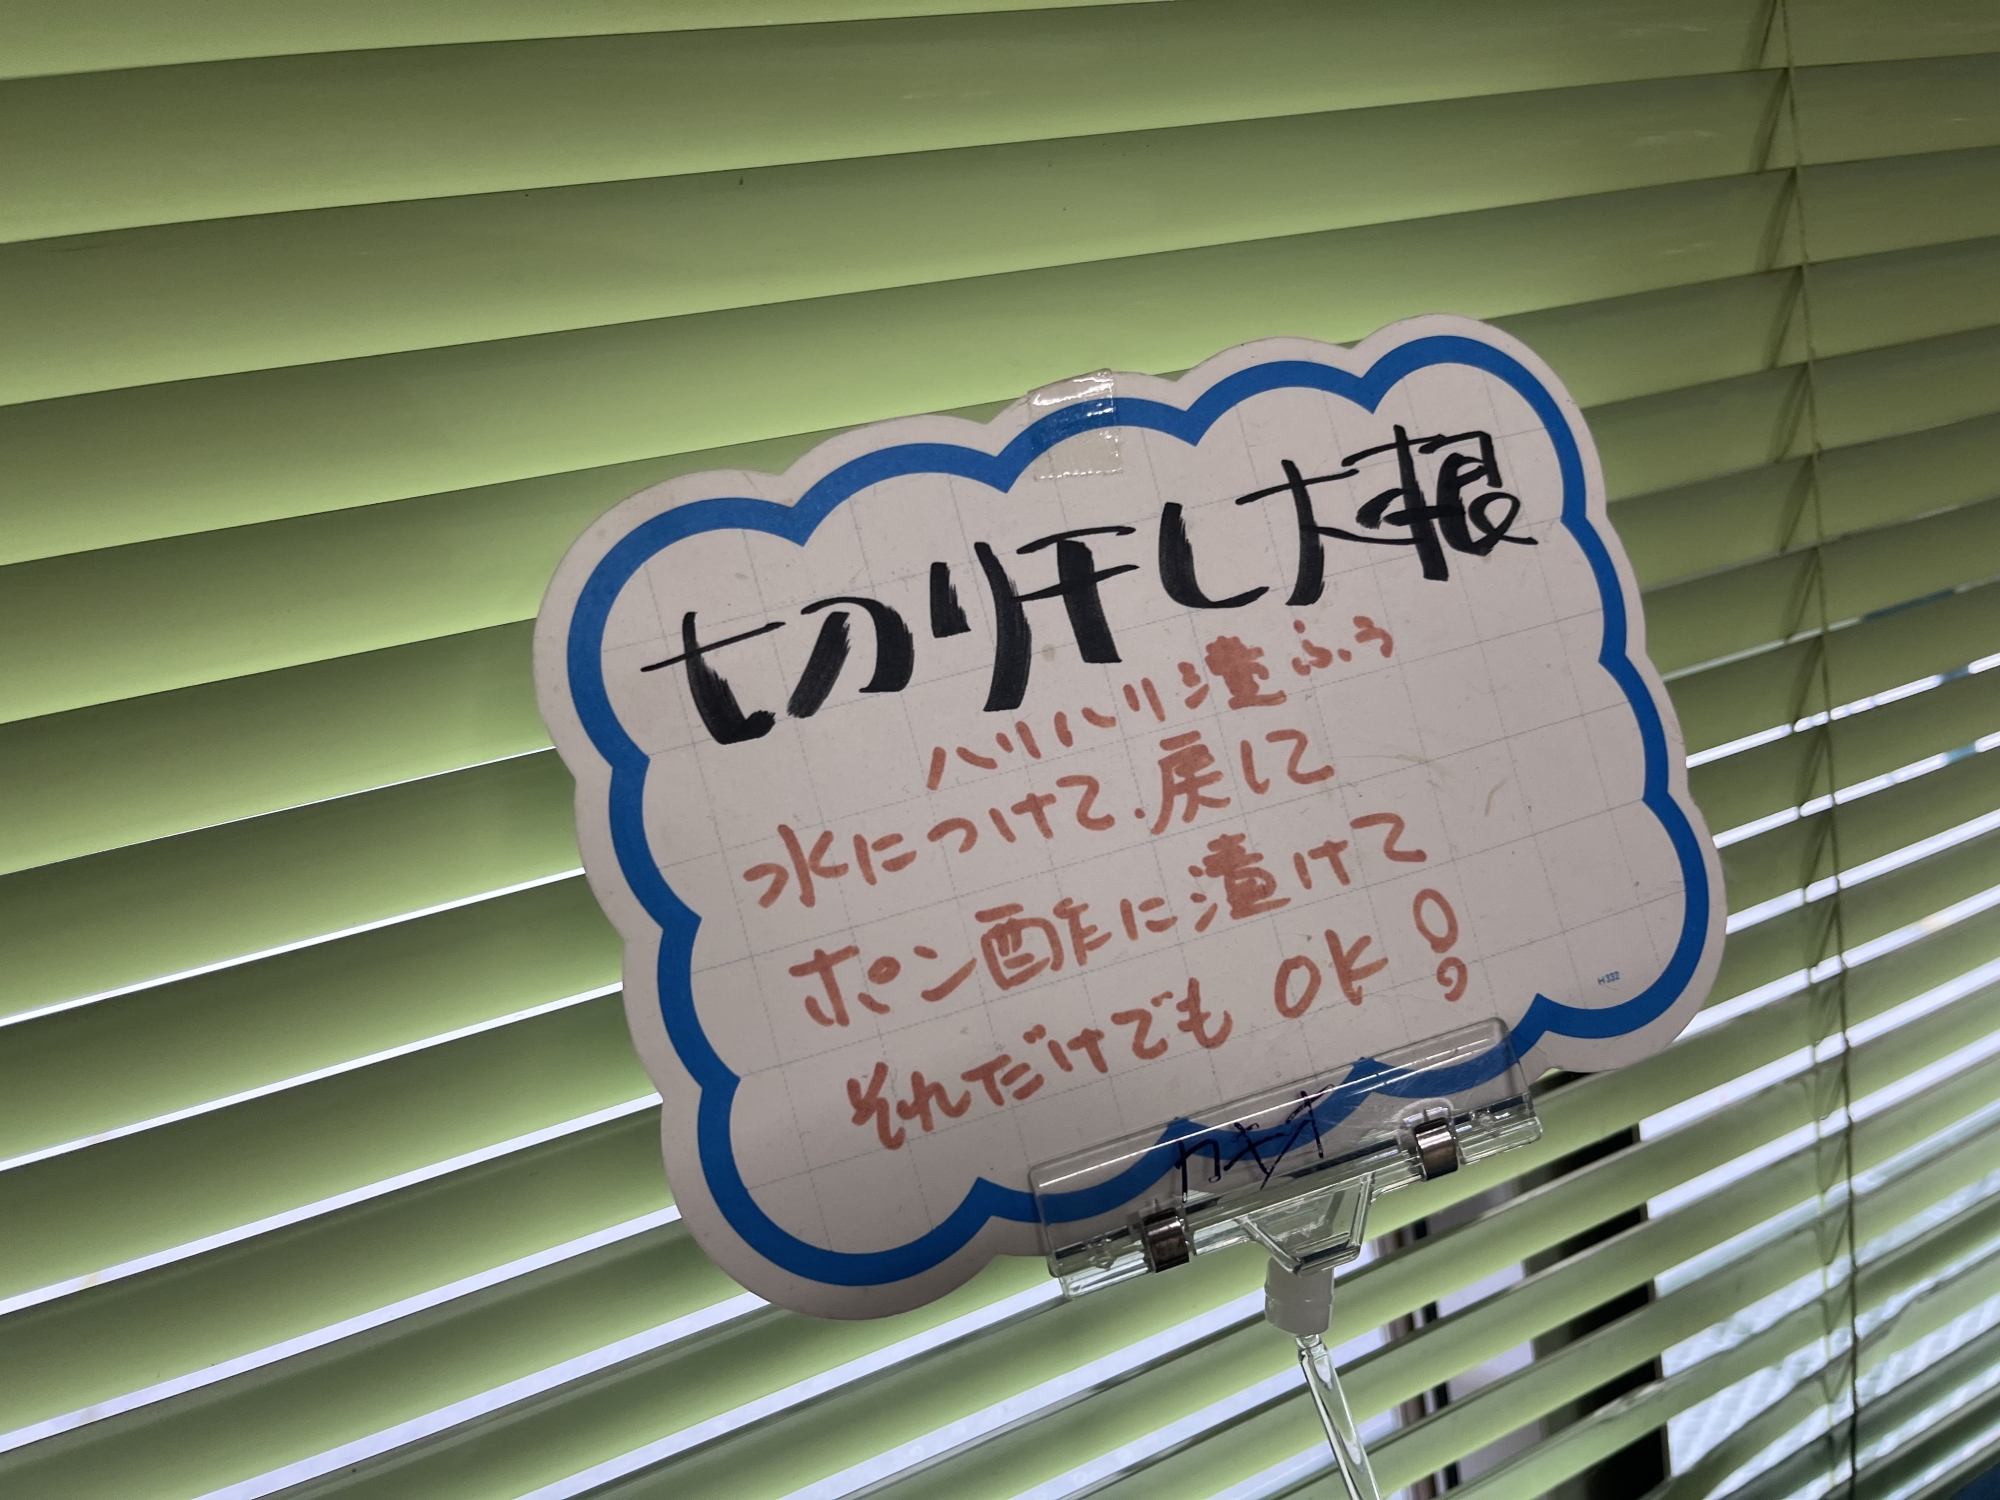 切り干し大根
ハリハリ漬ふう
水につけて.戻して
ポン酢に漬けて
それだけでも OK!
H332